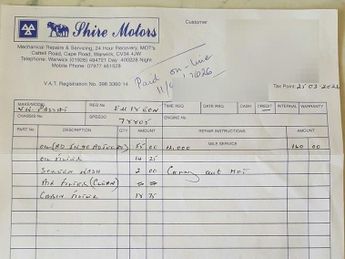 Shire Motors
Customer
Mechanical Repairs & Servicing, 24 Hour Recovery, MOT's
Cattell Road, Cape Road, Warwick, CV34 4JW
Telephone: Warwick (01926) 494721 Day 400228 Night
Mobile Phone: 07977 461628
Paid on-line
V.A.T. Registration No. 398 3390 14
Tax Point
MAKE/MODEL REG No TIME REQ. DATE REQ. CASH CREDIT INTERNAL RETAIL
VW PASSAT
CHASSIS No. SPEEDO ENGINE No.
78805
Part No. DESCRIPTION QTY AMOUNT REPAIR INSTRUCTIONS AMOUNT
MILE SERVICE 160 00
OIL FILTER 14 25
SCREEN WASH 2 00 Carry out MOT
AIR FILTER (CLEAN)
CABIN FILTER 75